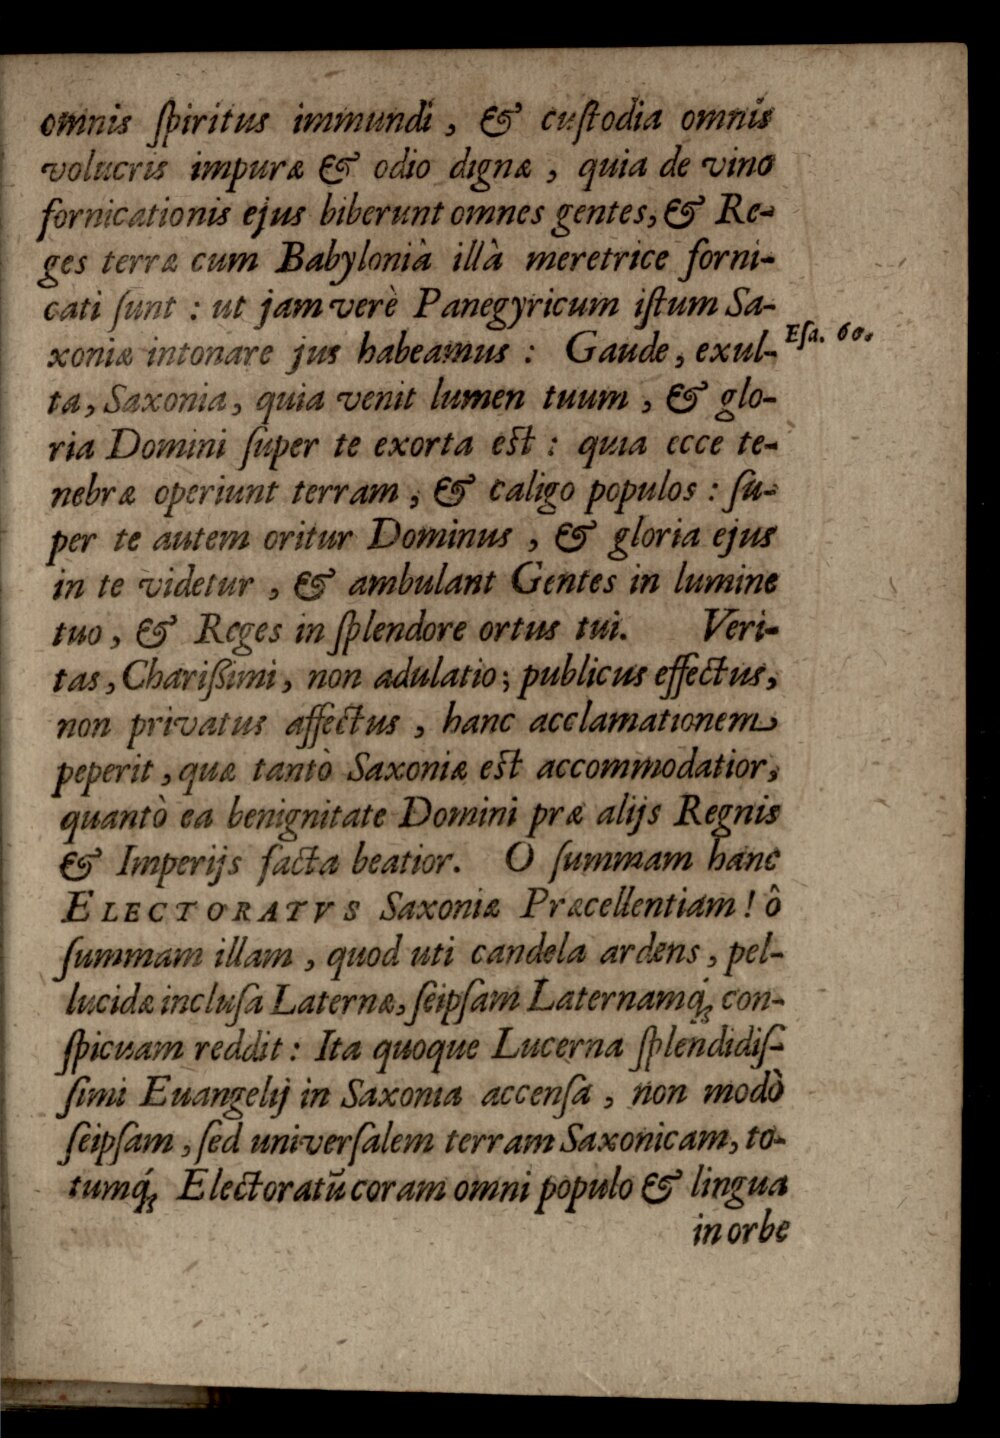 omnis ſpiritus immundi, & cuſtodia omnis
volucris impuræ & odio dignæ, quia de vino
fornicationis ejus biberunt omnes gentes, & Re-
ges terræ cum Babyloniâ illà meretrice forni-
cati ſunt: ut jam verè Panegyricum iſtum Sa-
xoniæ intonare jus habeamus: Gaude, exul-
Eſa. 60.
ta, Saxonia, quia venit lumen tuum, & glo-
ria Domini ſuper te exorta eſt: quia ecce te-
nebræ operiunt terram, & caligo populos: ſu-
per te autem oritur Dominus, & gloria ejus
in te videtur, & ambulant Gentes in lumine
tuo, & Reges in ſplendore ortus tui. Veri-
tas, Chariſſimi, non adulatio; publicus effectus,
non privatus affectus, hanc acclamationem
peperit, quæ tantò Saxoniæ eſt accommodatior,
quantò ea benignitate Domini præ alijs Regnis
& Imperijs facta beatior. O ſummam hanc
ELECTORATVS Saxoniæ Præcellentiam! ô
ſummam illam, quod uti candela ardens, pel-
lucidæ incluſa Laternæ, ſeipſam Laternamq́; con-
ſpicuam reddit: Ita quoque Lucerna ſplendidiſ-
ſimi Euangelij in Saxonia accenſa, non modò
ſeipſam, ſed univerſalem terram Saxonicam, to-
tumq́; Electoratũ coram omni populo & lingua
in orbe